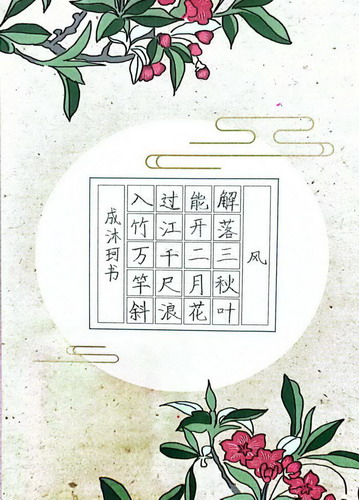 风
解落三秋叶
能开二月花
过江千尺浪
入竹万竿斜
成沐珂书